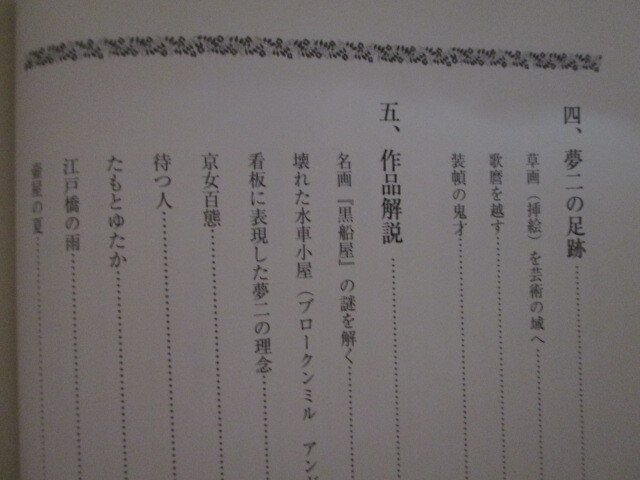 四、夢二の足跡
草画（挿絵）を芸術の域へ
歌麿を越す
装幀の鬼才
五、作品解説
名画『黒船屋』の謎を解く
壊れた水車小屋（ブロークンミル アンド
看板に表現した夢二の理念
京女百態
待つ人
たもとゆたか
江戸橋の雨
屋の夏